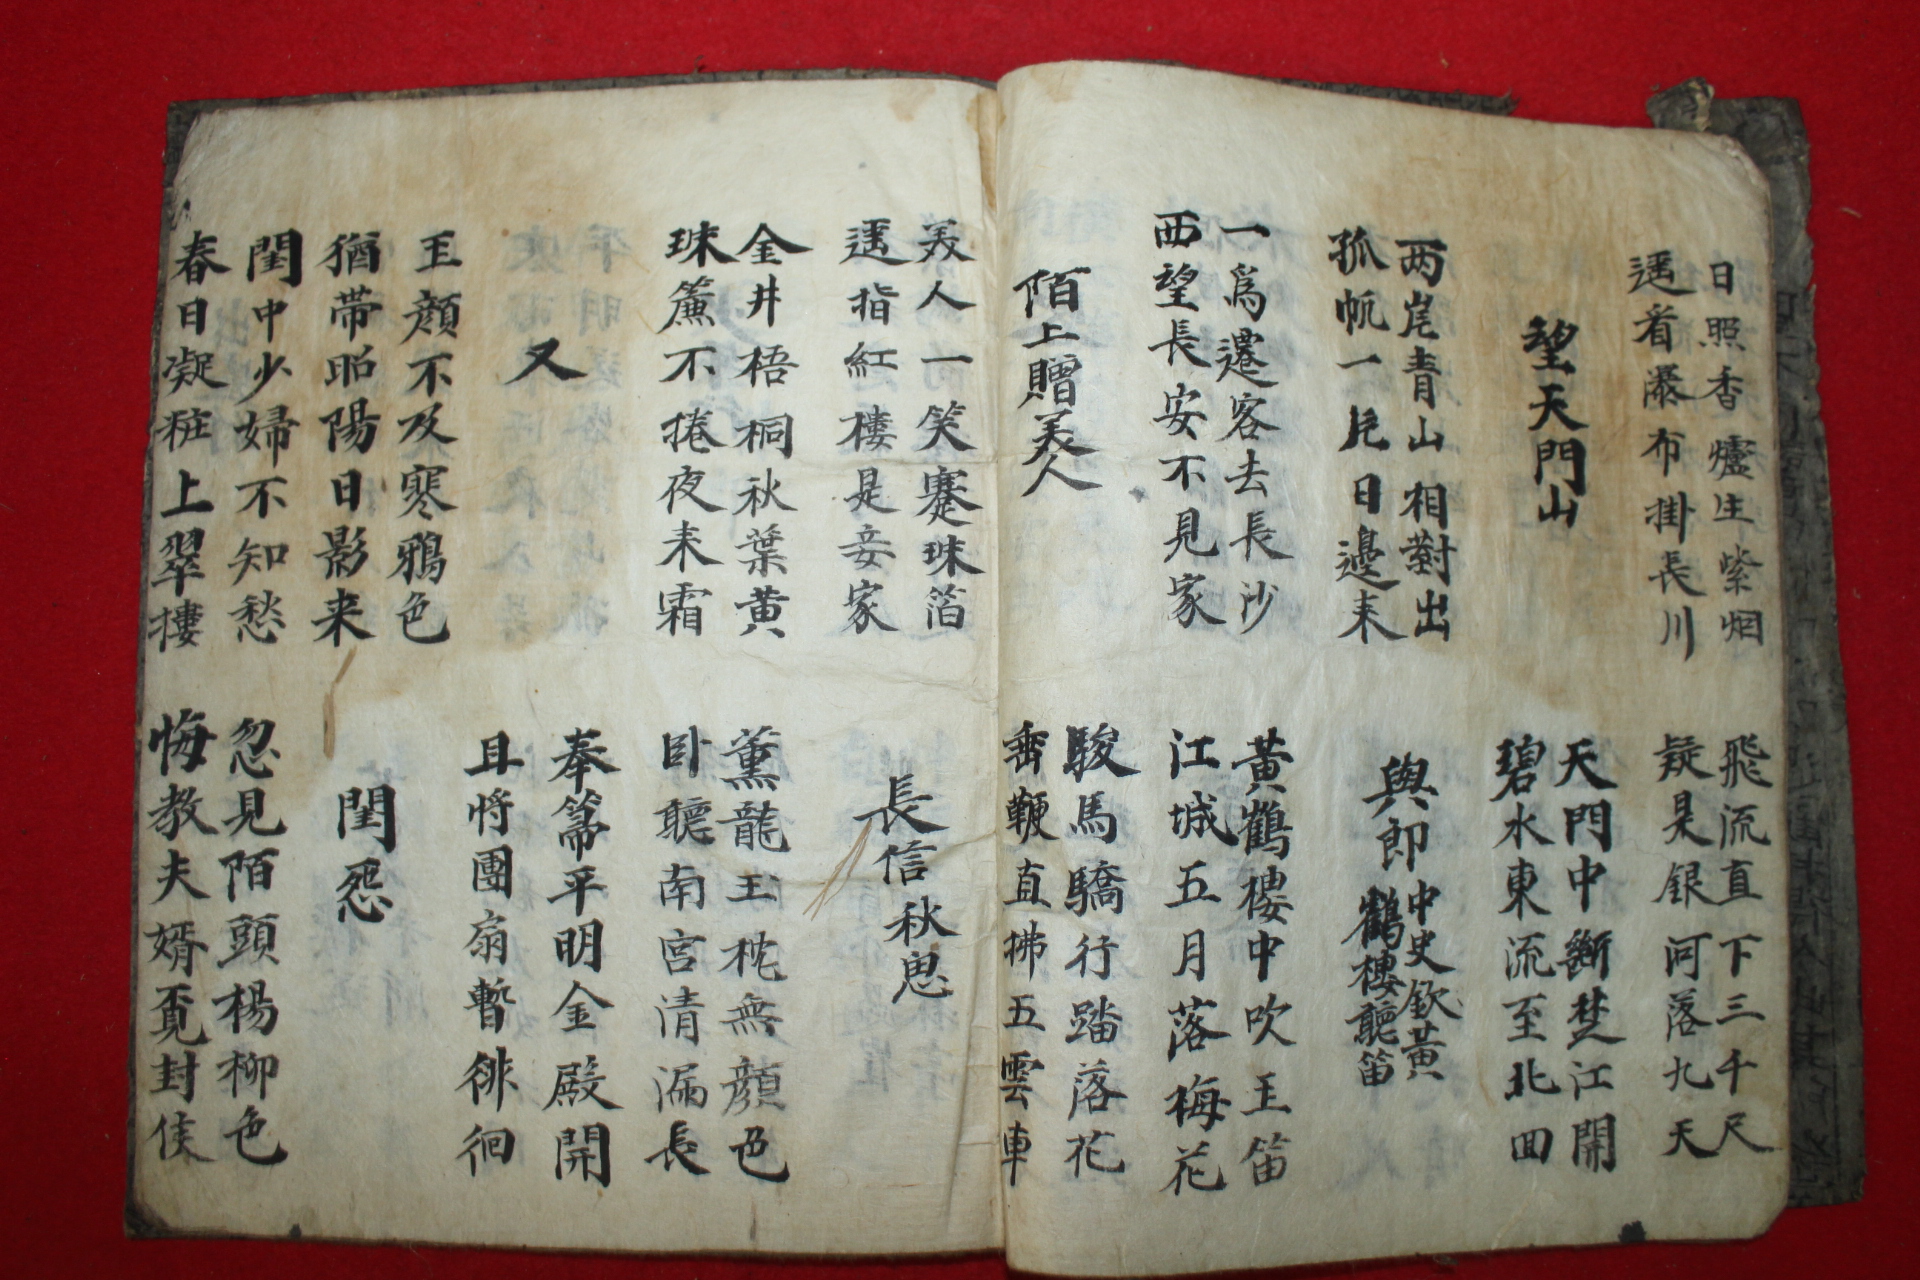 日照香爐生紫烟
遥看瀑布掛長川
飛流直下三千尺
疑是銀河落九天
望天門山
天門中斷楚江開
碧水東流至北回
两岸青山相對出
孤帆一片日邊来
與郎中史欽黃
鶴樓聽笛
一爲遷客去長沙
西望長安不見家
黃鶴樓中吹玉笛
江城五月落梅花
陌上贈美人
駿馬驕行踏落花
垂鞭直拂五雲車
美人一笑褰珠箔
遥指紅樓是妾家
長信秋思
金井梧桐秋葉黃
珠簾不捲夜来霜
薰龍玉枕無顔色
卧聽南宮清漏長
又
奉箒平明金殿開
且將團扇暫徘徊
玉顔不及寒鴉色
猶帶昭陽日影来
閨怨
閨中少婦不知愁
春日凝粧上翠樓
忽見陌頭楊柳色
悔教夫婿覓封侯